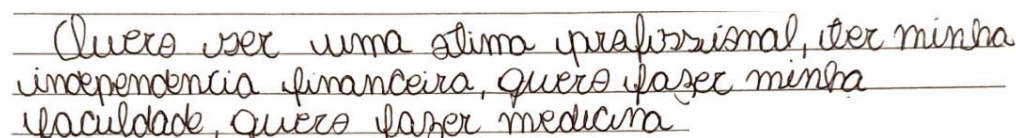 Quero ser uma otima profissional, ter minha
independencia financeira, quero fazer minha
faculdade, quero fazer medicina